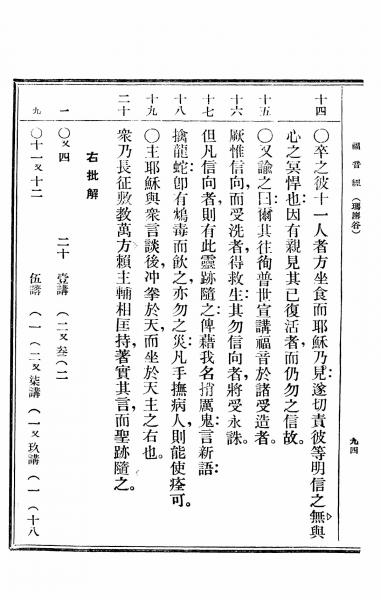 福音經 (瑪谷) 九四
十四 〇卒之彼十一人者方坐食而耶穌乃見遂切責彼等明信之無與
心之冥悍也因有親見其已復活者而仍勿之信故。
十五 〇又諭之曰爾其往徇普世宣講福音於諸受造者。
十六 厥惟信向而受洗者得救生其勿信向者將受永誅。
十七 但凡信向者則有此靈跡隨之俾藉我名捎厲鬼言新語
十八 擒龍蛇卽有鴆毒而飲之亦勿之災凡手撫病人則能使痊可。
十九 〇主耶穌與衆言談後冲拳於天而坐於天主之右也。
二十 衆乃長征敷教萬方賴主輔相匡持著實其言而聖跡隨之。
右批解
一 〇又四 二十 壹講 (二又叁(二
九 〇十一又十二 伍講 (一(二又柒講 (一又玖講 (一(十八